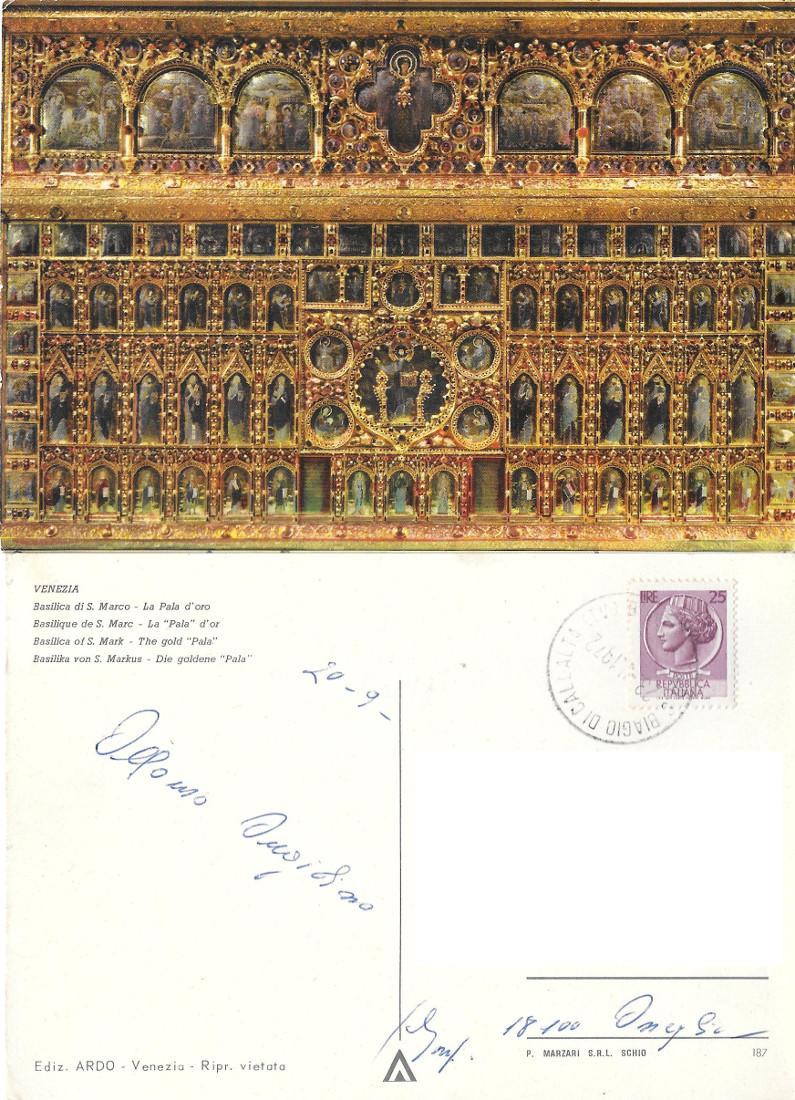 VENEZIA
Basilica di S. Marco - La Pala d'oro
Basilique de S. Marc - La "Pala" d'or
Basilica of S. Mark - The gold "Pala"
Basilika von S. Markus - Die goldene "Pala"
LIRE 25
REPVBBLICA
ITALIANA
BIAGIO DI CALLALTA
1972
20-9-
Alfonso
18100 Oneglia
P. MARZARI S.R.L. SCHIO
187
Ediz. ARDO - Venezia - Ripr. vietata